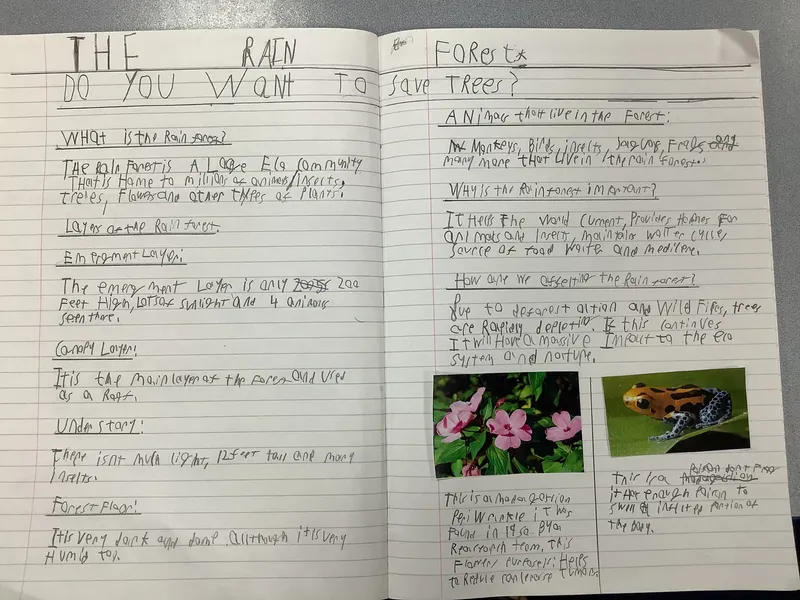 THE RAIN FOREST
DO YOU WANT TO save TREES?
WHAT is the Rain forest?
THE Rain Forest is A Large Eco Community
THat is Home to millions of animals/insects,
trees, Flowers and other types of Plants.
Layers of the Rain forest.
Emergment Layer:
The emergment Layer is only 200
Feet High, Lots of sunlight and 4 animals
seen there.
Canopy Layer:
It is the main layer of the Forest and used
as a Roof.
Understory:
There isnt much light, 12 feet tall and many
insects.
Forest Floor:
It is very dark and damp. allthough it is very
Humid too.
Animals that live in the Forest:
Monkeys, Birds, insects, Jaguars, Frogs and
many more that Live in the rain Forest.
Why is the Rainforest important?
It Hells The World Cument, Provides Homes For
animals and Insects, maintains watter cycle,
source of food Water and medicine.
How are we affecting the Rain forest?
Due to deforest altion and Wild Fires, trees
are Rapidly depleting. If this continues
It will Have a massive Impact to the eco
system and narture.
This is a madagastion
Peri Wrinkle it was
Found in 1950. By a
Research team. This
Flowers
to Reduce
This is a Poison dart Frog
it Has enough Poison to
swell of inflicted portion of
the body.